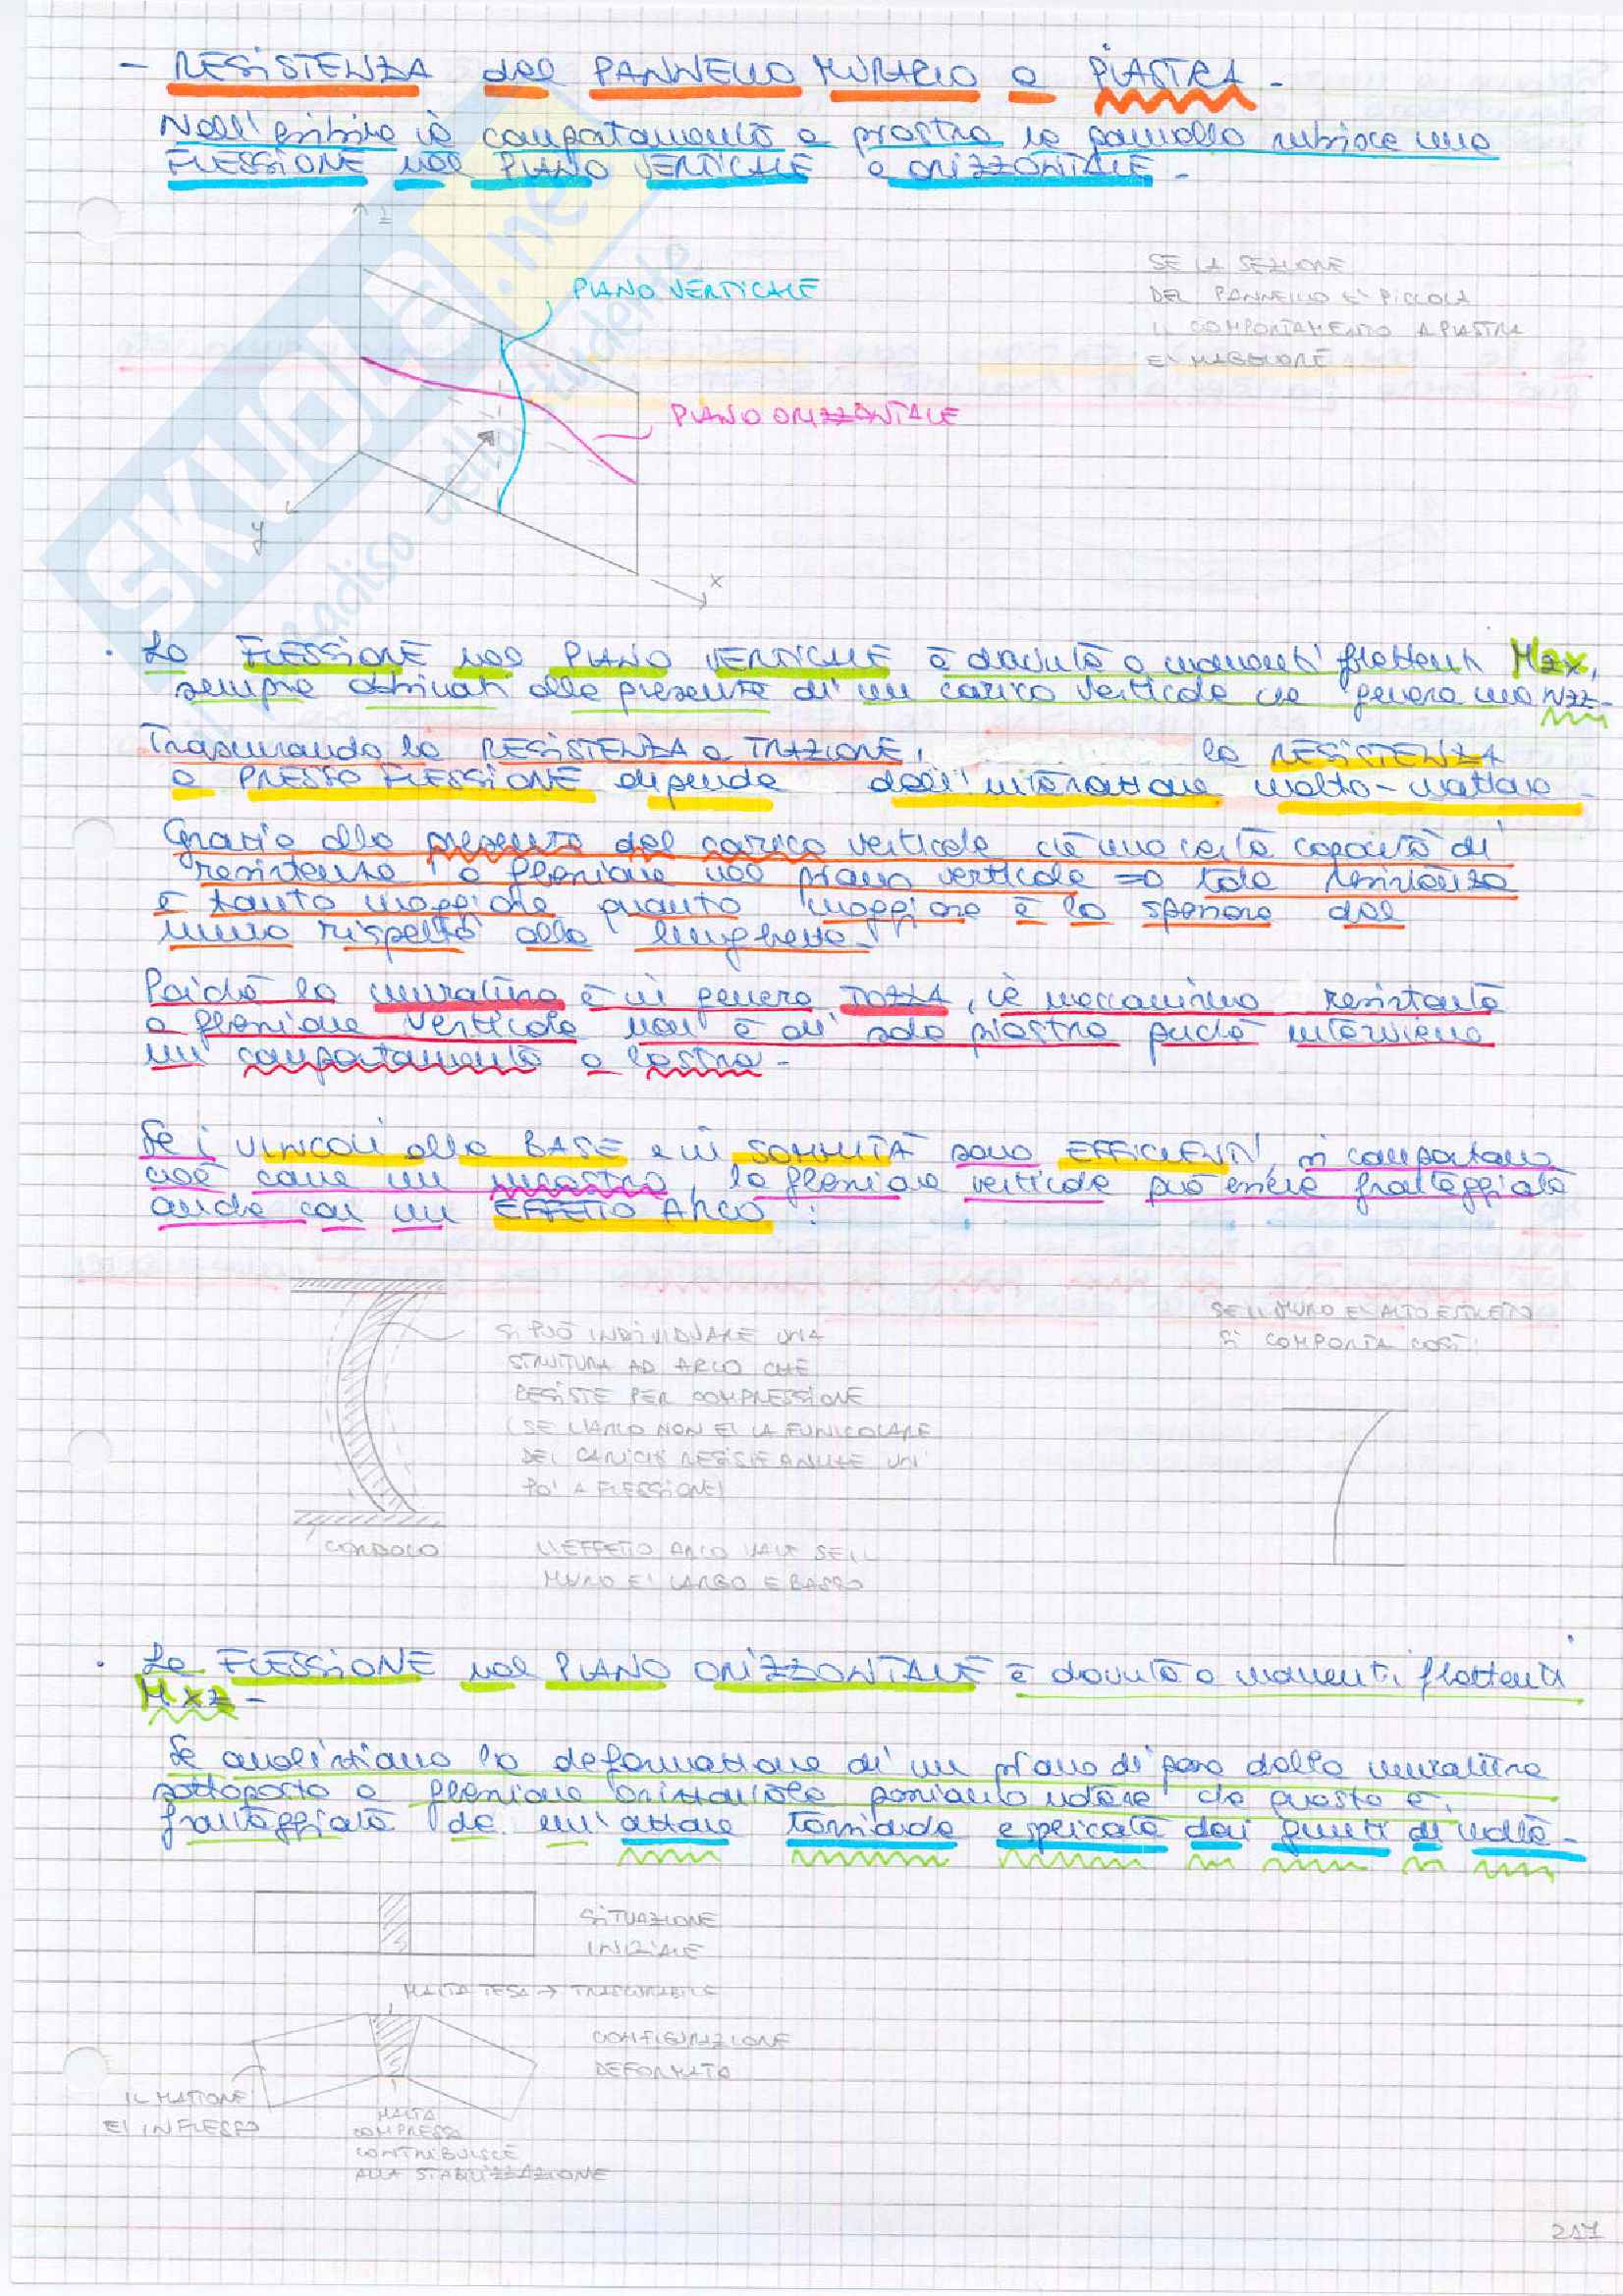 - RESISTENZA del PANNELLO MURARIO a PIASTRA -
Nell'esibire il comportamento a piastra il pannello subisce una
FLESSIONE nel PIANO VERTICALE e ORIZZONTALE -
z
SE LA SEZIONE
DEL PANNELLO E' PICCOLA
IL COMPORTAMENTO A PIASTRA
E' MAGGIORE
PIANO VERTICALE
PIANO ORIZZONTALE
y
x
· La FLESSIONE nel PIANO VERTICALE è dovuta a momenti flettenti Mzx,
sempre abbinati alla presenza di un carico verticale che genera una Nzz-
Trascurando la RESISTENZA a TRAZIONE, la RESISTENZA
a PRESSO FLESSIONE dipende dall'interazione malta-mattone -
Grazie alla presenza del carico verticale c'è una certa capacità di
resistenza a flessione nel piano verticale => tale resistenza
è tanto maggiore quanto maggiore è lo spessore del
muro rispetto alla lunghezza -
Poiché la muratura è in genere TOZZA, il meccanismo resistente
a flessione verticale non è di sola piastra poiché interviene
un comportamento a lastra -
Se i VINCOLI alla BASE e in SOMMITÀ sono EFFICIENTI, si comportano
cioè come un incastro, la flessione verticale può essere fronteggiata
anche con un EFFETTO ARCO :
SI PUÒ INDIVIDUARE UNA
STRUTTURA AD ARCO CHE
RESISTE PER COMPRESSIONE
(SE L'ARCO NON E' LA FUNICOLARE
DEI CARICHI RESISTE ANCHE UN
PO' A FLESSIONE)
SE IL MURO E' ALTO E STRETTO
SI COMPORTA COSÌ:
CORDOLO
L'EFFETTO ARCO VALE SE IL
MURO E' LARGO E BASSO
· La FLESSIONE nel PIANO ORIZZONTALE è dovuta a momenti flettenti
Mxz -
Se analizziamo la deformazione di un piano di posa della muratura
sottoposto a flessione orizzontale possiamo notare che questa è
fronteggiata da un'azione torsionale esplicata dai giunti di malta -
SITUAZIONE
INIZIALE
MALTA TESA → TRASCURABILE
CONFIGURAZIONE
DEFORMATA
IL MATTONE
E' INFLESSO
MALTA
COMPRESSA
CONTRIBUISCE
ALLA STABILIZZAZIONE
217
SKUOLA.net
paradiso dello studente